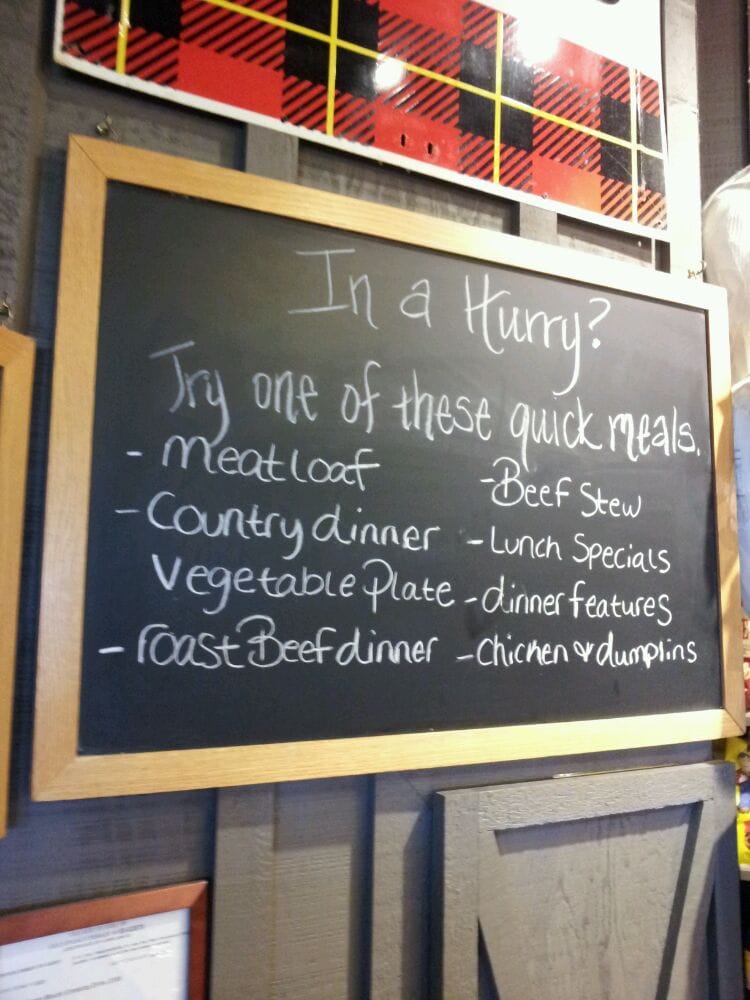 In a Hurry?
Try one of these quick meals.
- meatloaf
- Country dinner
Vegetable Plate
- roast Beef dinner
- Beef Stew
- Lunch Specials
- dinner features
- Chicken & dumplins